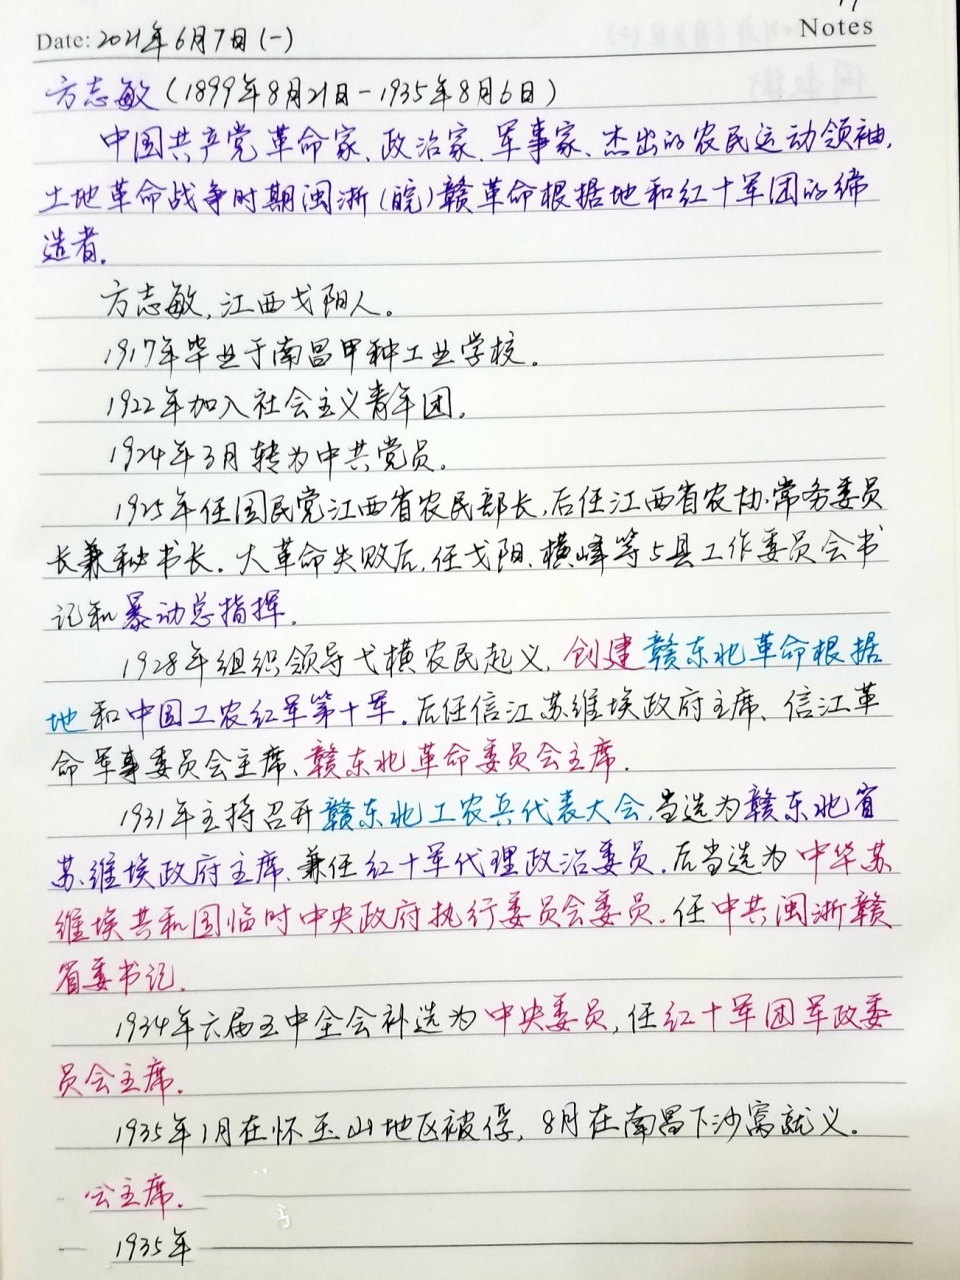 Date: 2021年6月7日(一) Notes
方志敏(1899年8月21日-1935年8月6日)
中国共产党革命家、政治家、军事家、杰出的农民运动领袖,
土地革命战争时期闽浙(皖)赣革命根据地和红十军团的缔
造者.
方志敏,江西戈阳人。
1917年毕业于南昌甲种工业学校.
1922年加入社会主义青年团.
1924年3月转为中共党员.
1925年任国民党江西省农民部长,后任江西省农协常务委员
长兼秘书长.大革命失败后,任戈阳、横峰等5县工作委员会书
记和暴动总指挥.
1928年组织领导弋横农民起义,创建赣东北革命根据
地和中国工农红军第十军.后任信江苏维埃政府主席、信江革
命军事委员会主席、赣东北革命委员会主席.
1931年主持召开赣东北工农兵代表大会,当选为赣东北省
苏维埃政府主席、兼任红十军代理政治委员.后当选为中华苏
维埃共和国临时中央政府执行委员会委员.任中共闽浙赣
省委书记.
1934年六届五中全会补选为中央委员,任红十军团军政委
员会主席.
1935年1月在怀玉山地区被俘,8月在南昌下沙窝就义.
会主席.
1935年